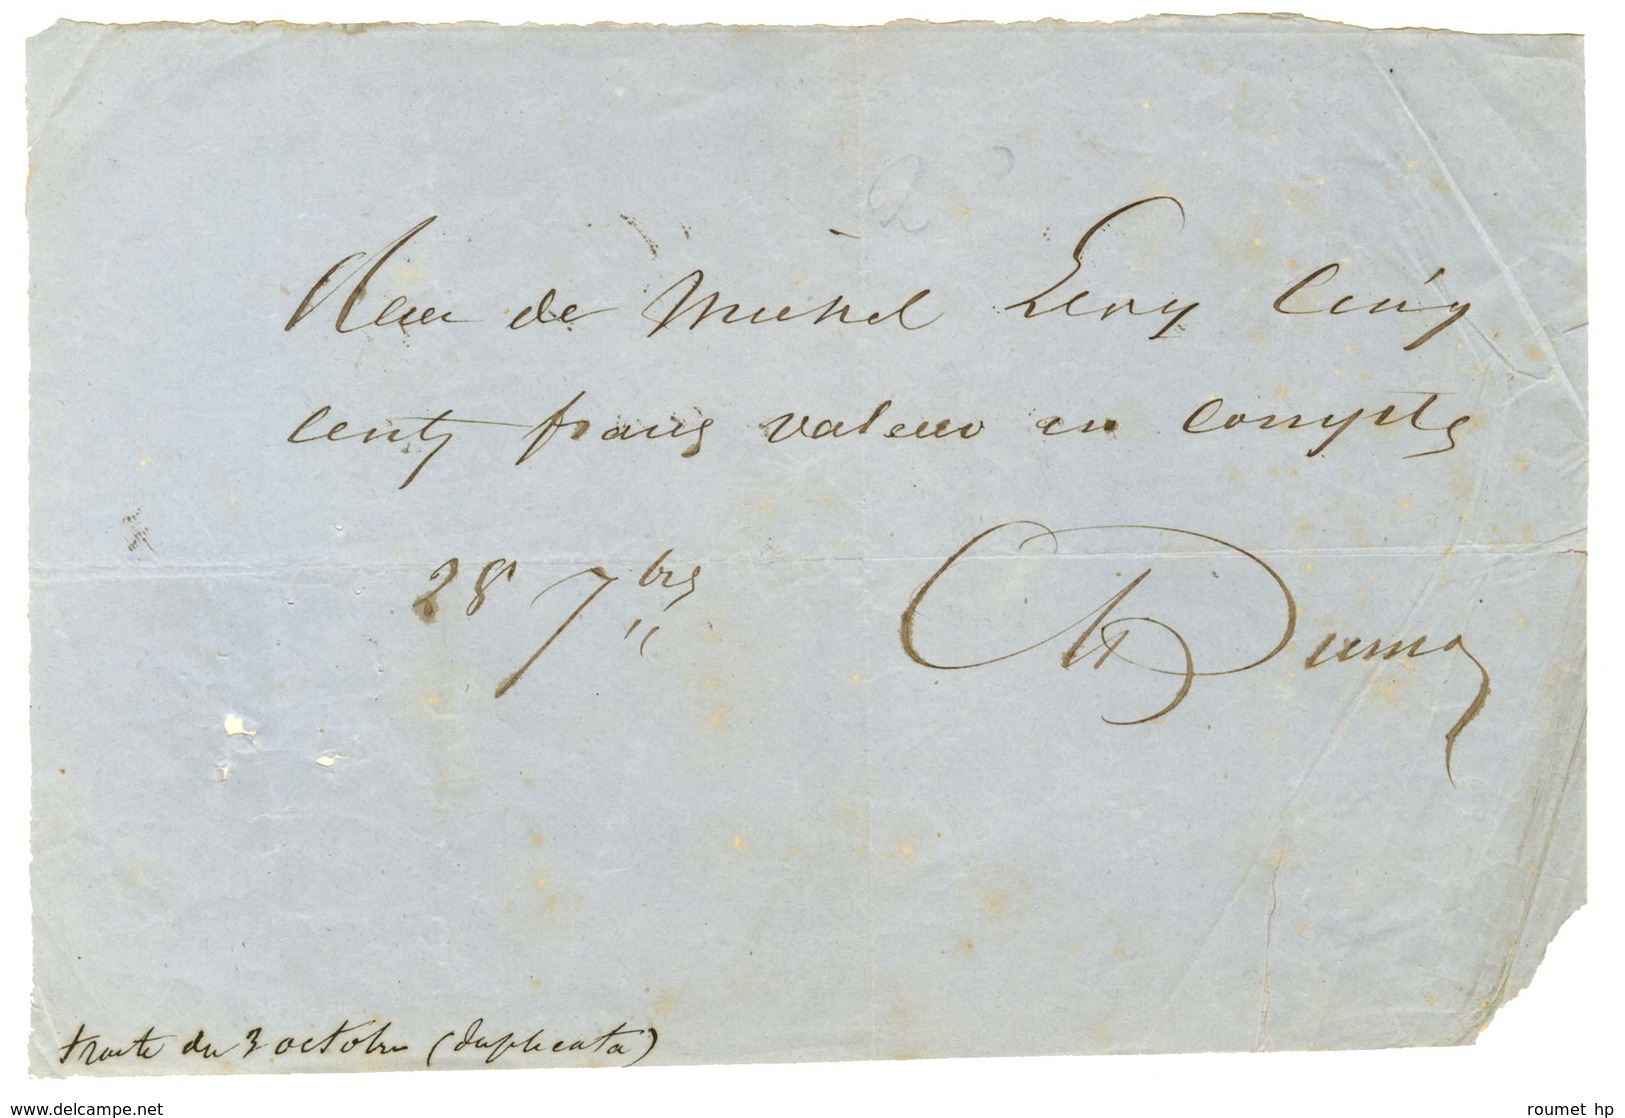 Recu de Michel Levy Cinq
cents francs valeur en compte
28 7bre
Al Dumas
traite du 3 octobre (duplicata)
www.delcampe.net
roumet hp